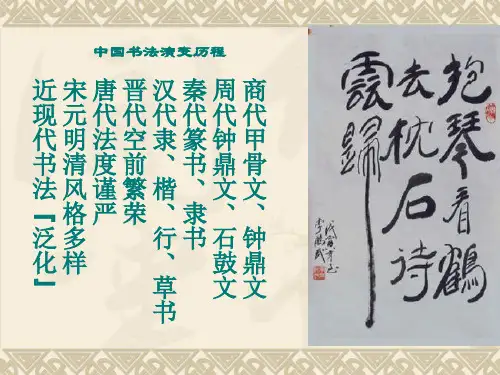 中国书法演变历程
商代甲骨文、钟鼎文
周代钟鼎文、石鼓文
秦代篆书、隶书
汉代隶、楷、行、草书
晋代空前繁荣
唐代法度谨严
宋元明清风格多样
近现代书法『泛化』
抱琴看鶴
去枕石待
雲歸